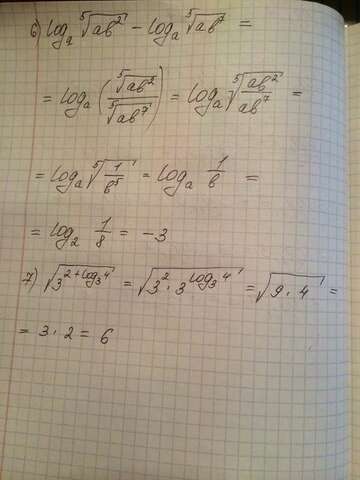 6) logₐ ⁵√(ab²) − logₐ ⁵√(ab⁷) =
= logₐ (⁵√(ab²) / ⁵√(ab⁷)) = logₐ ⁵√(ab²/ab⁷) =
= logₐ ⁵√(1/b⁵) = logₐ 1/b =
= log₂ 1/8 = −3
7) √(3^(2+log₃4)) = √(3² · 3^(log₃4)) = √(9 · 4) =
= 3 · 2 = 6